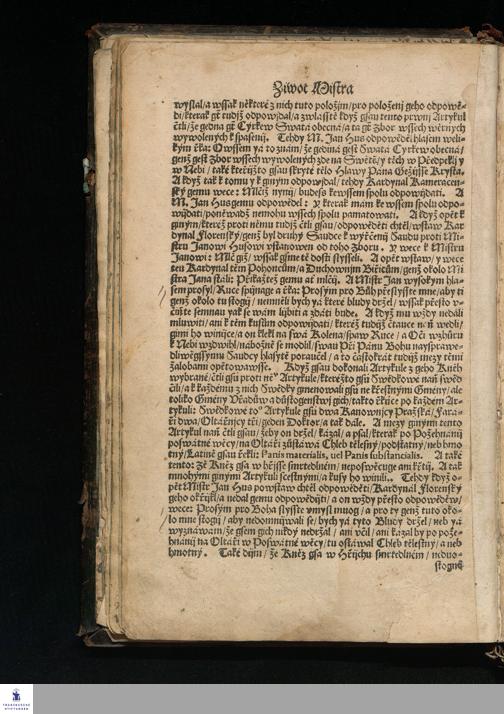 Žiwot Mistra
wyslal/a wssak některé z nich tuto položjm/pro položenj geho odpowě-
di/kterak gt tudjž odpowjdal/a zwlasstě když gsau tento prwnj Artykul
čtli/že gedna gt Cyrkew Swata obecna/a ta gt Zbor wssech wěrnych
wywolenych k spasenij. Tehdy M. Jan Hus odpowěděl hlasem weli-
kým řka: Owssem ya to znám/že gedina gest Swata Cyrkew obecna/
genž gest Zbor wssech wywolenych zde na Swětě/y těch w Péekle/ y
w Nebi/ také kteřižto gsau skryté tělo Hlawy Pána Gežjsse Krysta.
A když tak k tomu y k ginym odpowjdal/ tehdy Kardynal Kameracen-
ský gemu wece: Mlčiž nynj/ budess kewssem spolu odpowjdati. A
M. Jan Hus gemu odpowěděl: y kterak mam ke wssem spolu odpo-
wjdati/poněwadž nemohu wssech spolu pamatowati. A když opět k
ginym/kteréž proti němu tudjž čtli gsau/odpowěděti chtěl/wstaw Kar
dynal Florenský/genž byl druhý Saudce k wyřčenij Saudu proti Mi-
stru Janowi Husowi wstanowen od toho Zboru. y wece k Mistru
Janowi: Mlčiž yak/ wssak gsme tě dosti slysseli. A opět wstaw/ y wece
ten Kardynal těm Pohoncům/a Duchownjm Biřicům/genž okolo Mi
stra Jana stáli: Přikažtež gemu ať mlčij. A Mistr Jan wysokým hla-
sem prosyl/Ruce spijnage a řka: Prosým pro Bůh přeslysste mne/aby ti
genž okolo tu stogij/ neměli bych ya které bludy držel/ wssak přesto v-
čiňte semnau yak se wám lijbiti a zdáti bude. A když mu wždy nedáli
mluwiti/ani k těm kusům odpowijdati/ kteréž tudijž čtauce nań wedli/
gimi ho winijce/a on klekl na swá Kolena/spaw Ruce/ a Oči wzhůru
k Nebi wzdwihl/nábožně se modlil/swau Při Pánu Bohu nayspraw-
dliwěgssýmu Saudcy hlasytě porauččel/ a to častokrát tudijž mezy těmi
Žalobami opětowáwsse. Když gsau dokonali Artykule z geho Kněh
wybrané/čtli gsu proti něm Artykule/kterežto gsu Swědkowe nań swěd
čili/a k každému z nich Swědky gmenowali gsu ne křestnými Gmény/ale
toliko Gmény Vřadůw a důstogenstwj gich/takto řkuce po každém Ar-
tykuli: Swědkowe to° Artykule gsu dwa Kanownijcy Pražská/Fara-
ři dwa/Oltářnijcy tři/geden Doktor/a tak dále. A mezy ginými tento
Artykul nań čtli gsau/žeby on držel/kázal/a psal/kterak po Požehnanij
poswátné wěcy/na Oltáři zůstáwá Chleb tělesný/podstatný/neb hmo
tný/Latině gsau řekli: Panis materialis, vel Panis substancialis. A také
tento: že Kněz gsa w hřjsse smrtedlném/ neposwěcuge ani křtij. A tak
mnohými ginými Artykuli sscestnými/a kusy ho winili.. Tehdy když o-
pět Mistr Jan Hus powstaw chtěl odpowěděti/Kardynál Florenský
geho okřijkl/a nedal gemu odpowědijti/a on wždy přesto odpowěděw/
wece: Prosým pro Boha slysste vmysl muog/a pro ty genž tuto oko-
lo mne stogij/aby nedomnijwali se/bych ya tyto Bludy držel/neb ya
wyznáwám/že gsem gich nikdy nedržal/ani včil/ani kázal by po pože-
hnanij na Oltáři w Poswátné wěcy/tu ostáwal Chleb tělestný/a neb
hmotný. Také dijm/že Kněz gsa w Hřijchu smrtedlném/neduo-
stogně